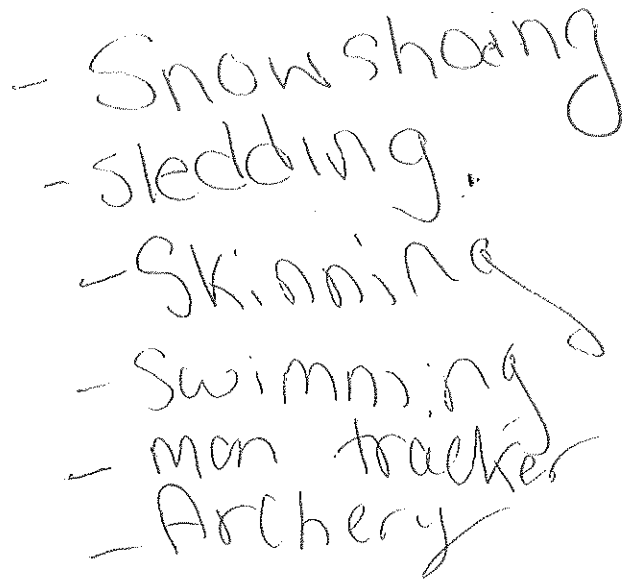 - Snowshoing
- sledding.
- Skinning
- Swimming
- man tracker
- Archery